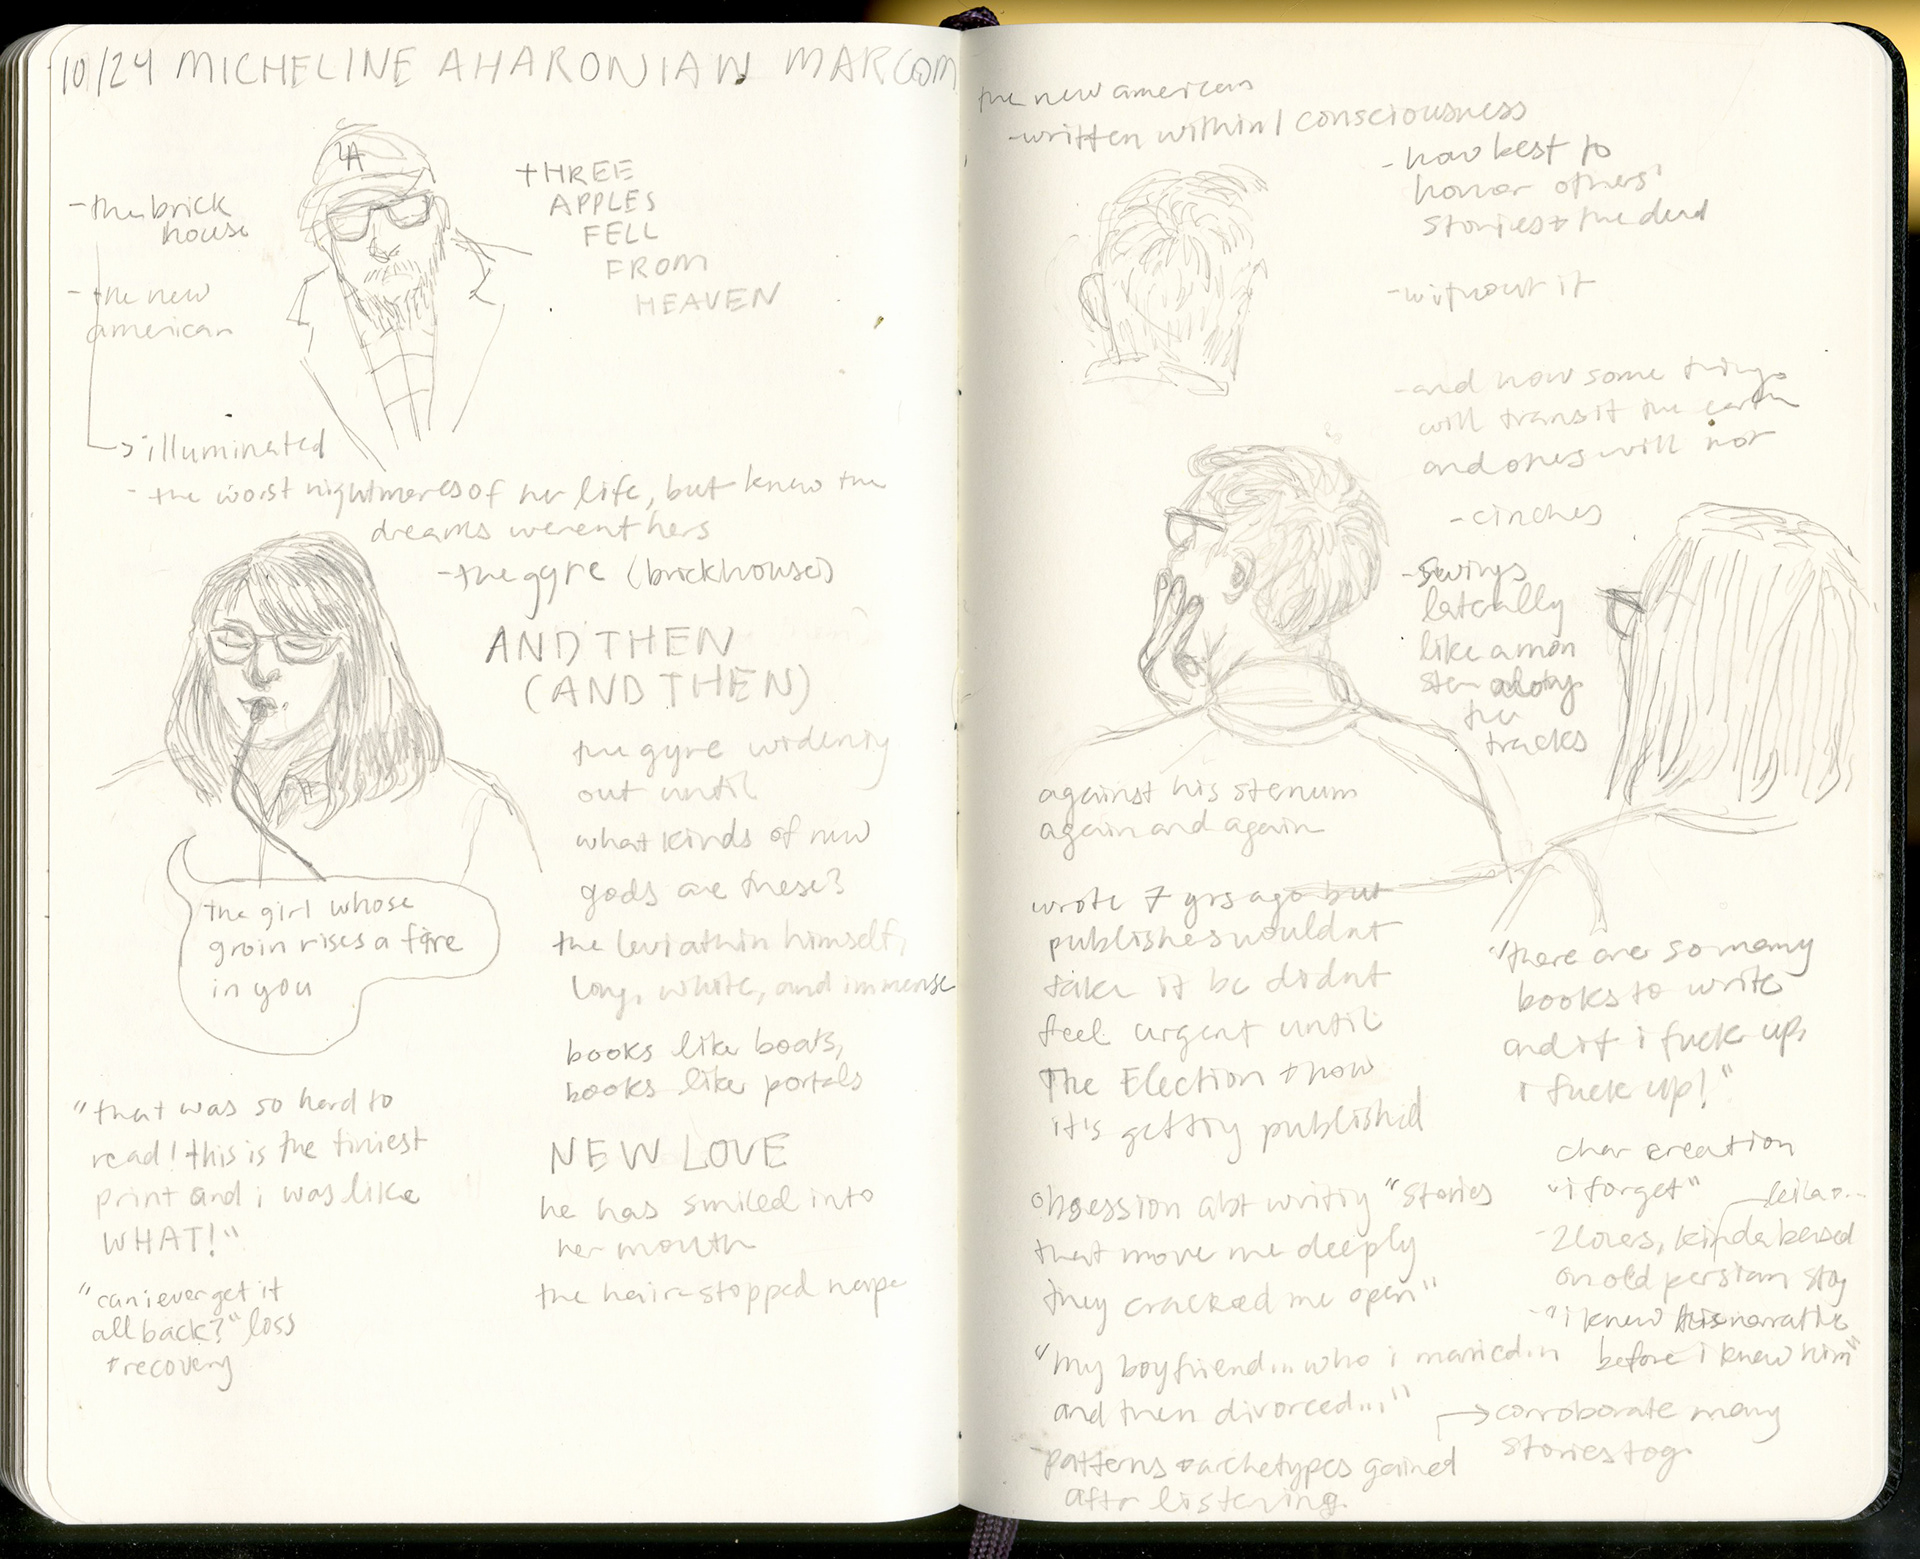 10/24 MICHELINE AHARONIAN MARCOM
LA
- the brick
house
- the new
american
THREE
APPLES
FELL
FROM
HEAVEN
illuminated
- the worst nightmares of her life, but knew the
dreams werent hers
- the gyre (brickhouse)
AND THEN
(AND THEN)
the gyre widening
out until
what kinds of new
gods are these?
the leviathin himself,
long, white, and immense
books like boats,
books like portals
NEW LOVE
he has smiled into
her mouth
the hair-stopped nape
the girl whose
groin rises a fire
in you
"that was so hard to
read! this is the tiniest
print and i was like
WHAT!"
"can i ever get it
all back?" loss
+ recovery
the new american
- written within 1 consciousness
- how best to
honor others'
stories + the dead
- without it
- and how some things
will transit the earth
and ones will not
- cinches
- swings
laterally
like a man
along
the
tracks
against his sternum
again and again
wrote 7 yrs ago but
publishers wouldnt
take it bc didnt
feel urgent until
The Election + now
it's getting published
"there are so many
books to write
and if i fuck up,
i fuck up!"
char creation
"i forget"
- 2 loves, kinda based
on old persian story
- "i knew this narrative
before i knew him"
obsession abt writing "stories
that move me deeply
they cracked me open"
"my boyfriend... who i married...
and then divorced..."
→ corroborate many
stories tog.
- patterns + archetypes gained
after listening